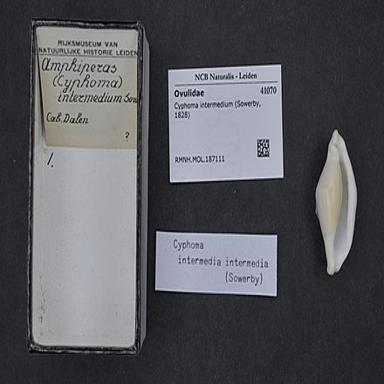 RIJKSMUSEUM VAN
NATUURLIJKE HISTORIE LEIDEN
Amphiperas
(Cyphoma)
intermedium Sow
Cab. Dalen
?
1.
NCB Naturalis - Leiden
Ovulidae 41070
Cyphoma intermedium (Sowerby,
1828)
RMNH.MOL.187111
Cyphoma
intermedia intermedia
(Sowerby)